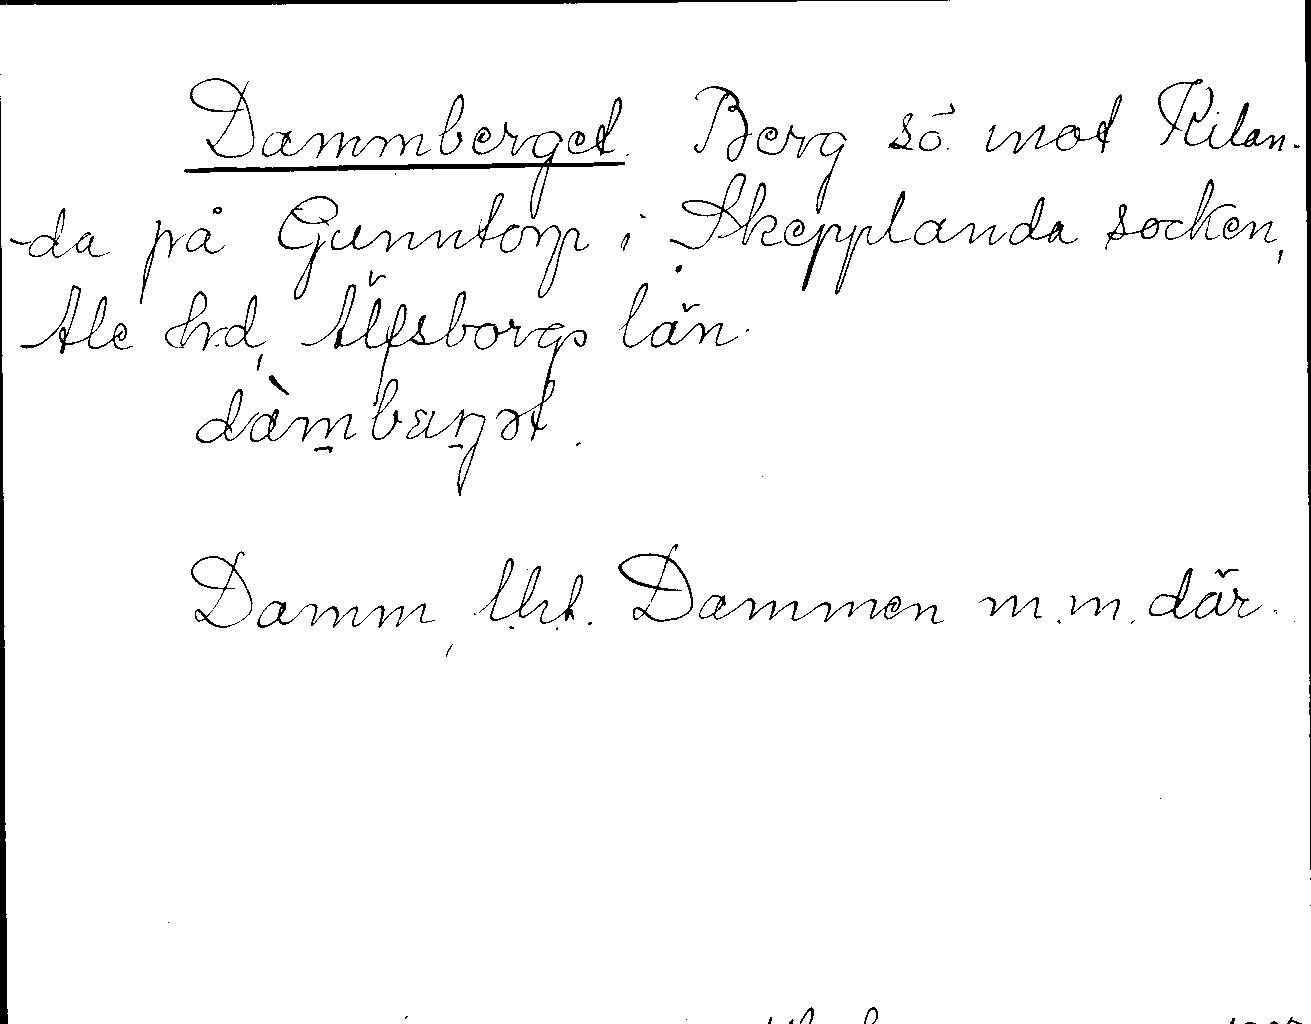 Dammberget. Berg sö. mot Kilan-
-da på Gunntorp i Skepplanda socken,
Ale hrd, Älfsborgs län.
dàm̱bæṟjət.
Damm, lht. Dammen m.m. där.